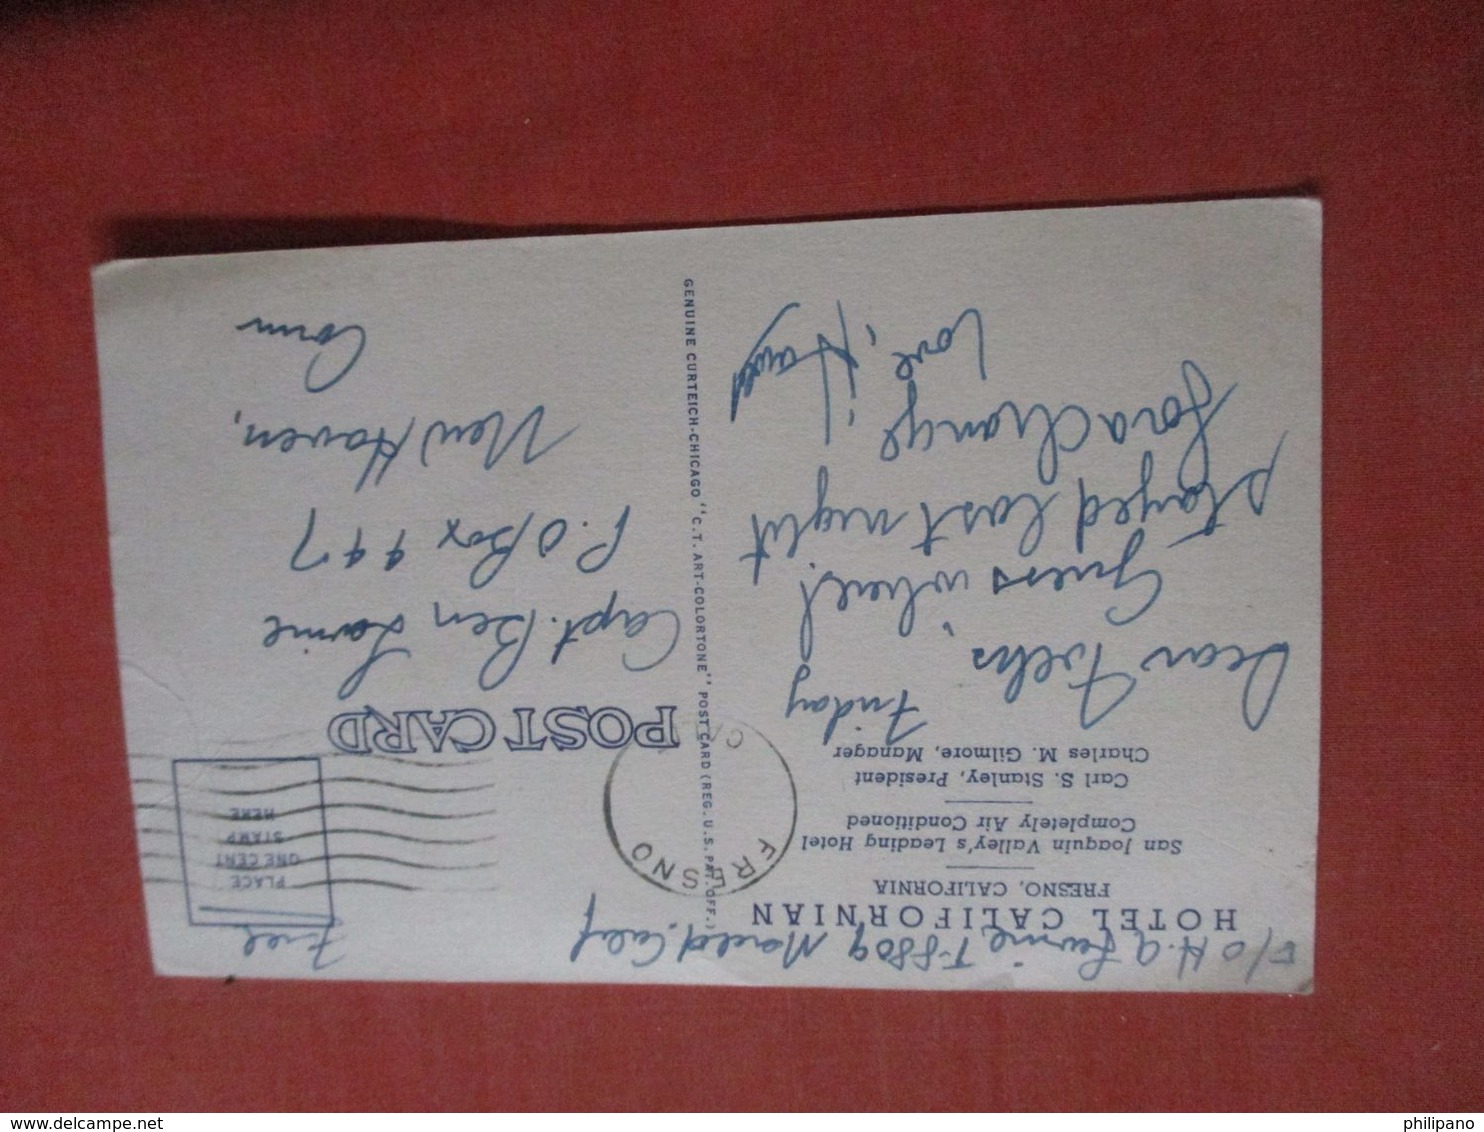 E/O H. A T-8809 Merced. Calif
HOTEL CALIFORNIAN
FRESNO, CALIFORNIA
San Joaquin Valley's Leading Hotel
Completely Air Conditioned
Carl S. Stanley, President
Charles M. Gilmore, Manager
Friday
Dear Folks,
Guess where!
Stayed last night
for a change
Love,
GENUINE CURTEICH-CHICAGO "C.T. ART-COLORTONE" POST CARD (REG. U.S. PAT. OFF.)
Free
PLACE
ONE CENT
STAMP
HERE
FRESNO
CAL
POST CARD
Capt. Ben
P.O Box 447
New Haven,
Conn
philipano
delcampe.net